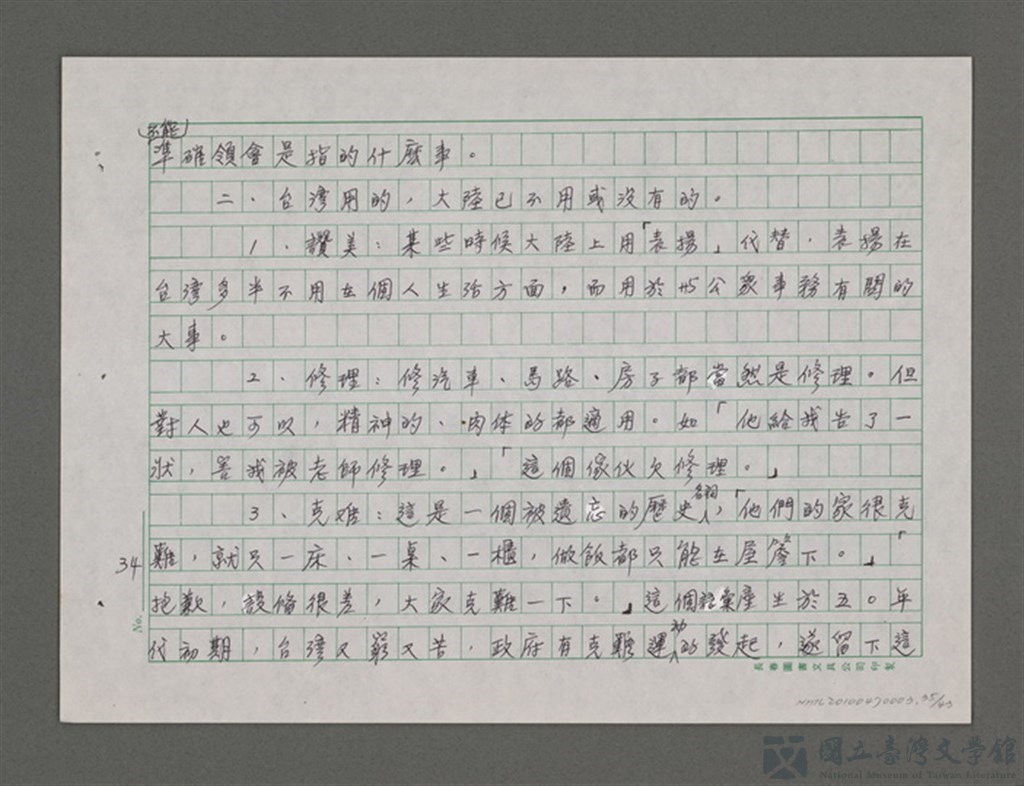 不能
準確領會是指的什麼事。
二、台灣用的,大陸已不用或沒有的。
1、讚美:某些時候大陸上用「表揚」代替,表揚在
台灣多半不用在個人生活方面,而用於與公眾事務有關的
大事。
2、修理:修汽車、馬路、房子都當然是修理。但
對人也可以,精神的、肉体的都適用。如「他給我告了一
狀,害我被老師修理。」「這個傢伙欠修理。」
3、克难:這是一個被遺忘的歷史名詞,「他們的家很克
難,就只一床、一桌、一櫃,做飯都只能在屋簷下。」「
抱歉,設備很差,大家克難一下。」這個語彙產生於五〇年
代初期,台灣又窮又苦,政府有克難運動的發起,遂留下這
34
No.
長春圖書文具公司印製
NMTL20100470003.35/43
國立臺灣文學館
National Museum of Taiwan Literature